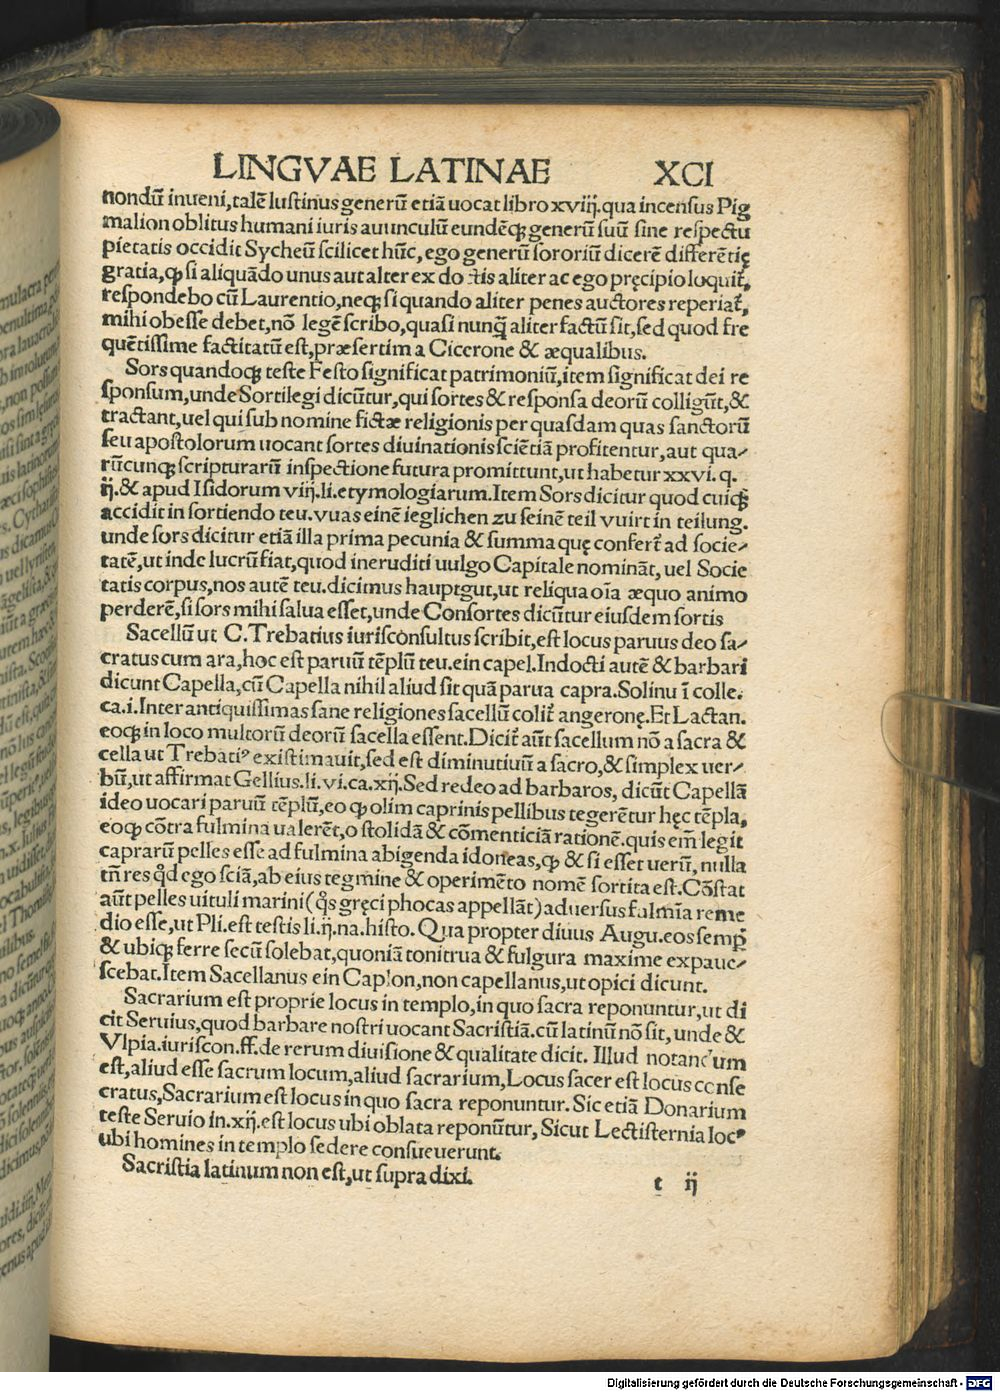 LINGVAE LATINAE XCI
nondū inueni,talē Iustinus generū etiā uocat libro xviij.qua incensus Pig
malion oblitus humani iuris auunculū eundēq; generū suū sine respectu
pietatis occidit Sycheū scilicet hūc, ego generū sororiū dicerē differētię
gratia,ꝙ si aliquādo unus aut alter ex do ctis aliter ac ego pręcipio loquit᷑,
respondebo cū Laurentio,neq; si quando aliter penes auctores reperiat᷑,
mihi obesse debet,nō legē scribo,quasi nunq̄ aliter factū sit,sed quod fre
quētissime factitatū est,præsertim a Cicerone & æqualibus.
Sors quandoq; teste Festo significat patrimoniū,item significat dei re
sponsum,unde Sortilegi dicūtur,qui sortes & responsa deorū colligūt,&
tractant,uel qui sub nomine fictæ religionis per quasdam quas sanctorū
seu apostolorum uocant sortes diuinationis sciētiā profitentur,aut qua-
rūcunq; scripturarū inspectione futura promittunt,ut habetur xxvi. q.
ij.& apud Isidorum viij.li.etymologiarum.Item Sors dicitur quod cuiq;
accidit in sortiendo teu.vuas einē ieglichen zu seinē teil vuirt in teilung.
unde sors dicitur etiā illa prima pecunia & summa quę confert᷑ ad socie-
tatē,ut inde lucrū fiat,quod ineruditi uulgo Capitale nomināt, uel Socie
tatis corpus,nos autē teu.dicimus hauptgut,ut reliqua oīa æquo animo
perderē,si sors mihi salua esset,unde Consortes dicūtur eiusdem sortis
Sacellū ut C.Trebatius iurisconsultus scribit,est locus paruus deo sa-
cratus cum ara,hoc est paruū tēplū teu.ein capel.Indocti autē & barbari
dicunt Capella,cū Capella nihil aliud sit quā parua capra.Solinu ī colle.
ca.i.Inter antiquissimas sane religiones sacellū colit᷑ angeronę.Et Lactan.
eoq; in loco multorū deorū sacella essent.Dicit᷑ aūt sacellum nō a sacra &
cella ut Trebatiꝰ existimauit,sed est diminutiuū a sacro,& simplex uer-
bū,ut affirmat Gellius.li.vi.ca.xij.Sed redeo ad barbaros, dicūt Capellā
ideo uocari paruū tēplū,eo ꝙ olim caprinis pellibus tegerētur hęc tēpla,
eoq; cōtra fulmina ualerēt,o stolidā & cōmenticiā rationē.quis em̄ legit
caprarū pelles esse ad fulmina abigenda idoneas,ꝙ & si esset uerū, nulla
tn̄ res q̄d ego sciā,ab eius tegmine & operimēto nomē sortita est.Cōstat
aūt pelles uituli marini(q̄s gręci phocas appellāt)aduersus fulmīa reme
dio esse,ut Pli.est testis li.ij.na.histo. Qua propter diuus Augu.eos semp̱
& ubiq; ferre secū solebat,quoniā tonitrua & fulgura maxime expauc-
scebat.Item Sacellanus ein Caplon,non capellanus,ut opici dicunt.
Sacrarium est proprie locus in templo,in quo sacra reponuntur,ut di
cit Seruius,quod barbare nostri uocant Sacristiā.cū latinū nō sit, unde &
Vlpia.iuriscon.ff.de rerum diuisione & qualitate dicit. Illud notandum
est,aliud esse sacrum locum,aliud sacrarium,Locus sacer est locus conse
cratus,Sacrarium est locus in quo sacra reponuntur. Sic etiā Donarium
teste Seruio in.xij.est locus ubi oblata reponūtur, Sicut Lectisternia locꝰ
ubi homines in templo sedere consueuerunt.
Sacristia latinum non est,ut supra dixi.
t ij
Digitalisierung gefördert durch die Deutsche Forschungsgemeinschaft - DFG